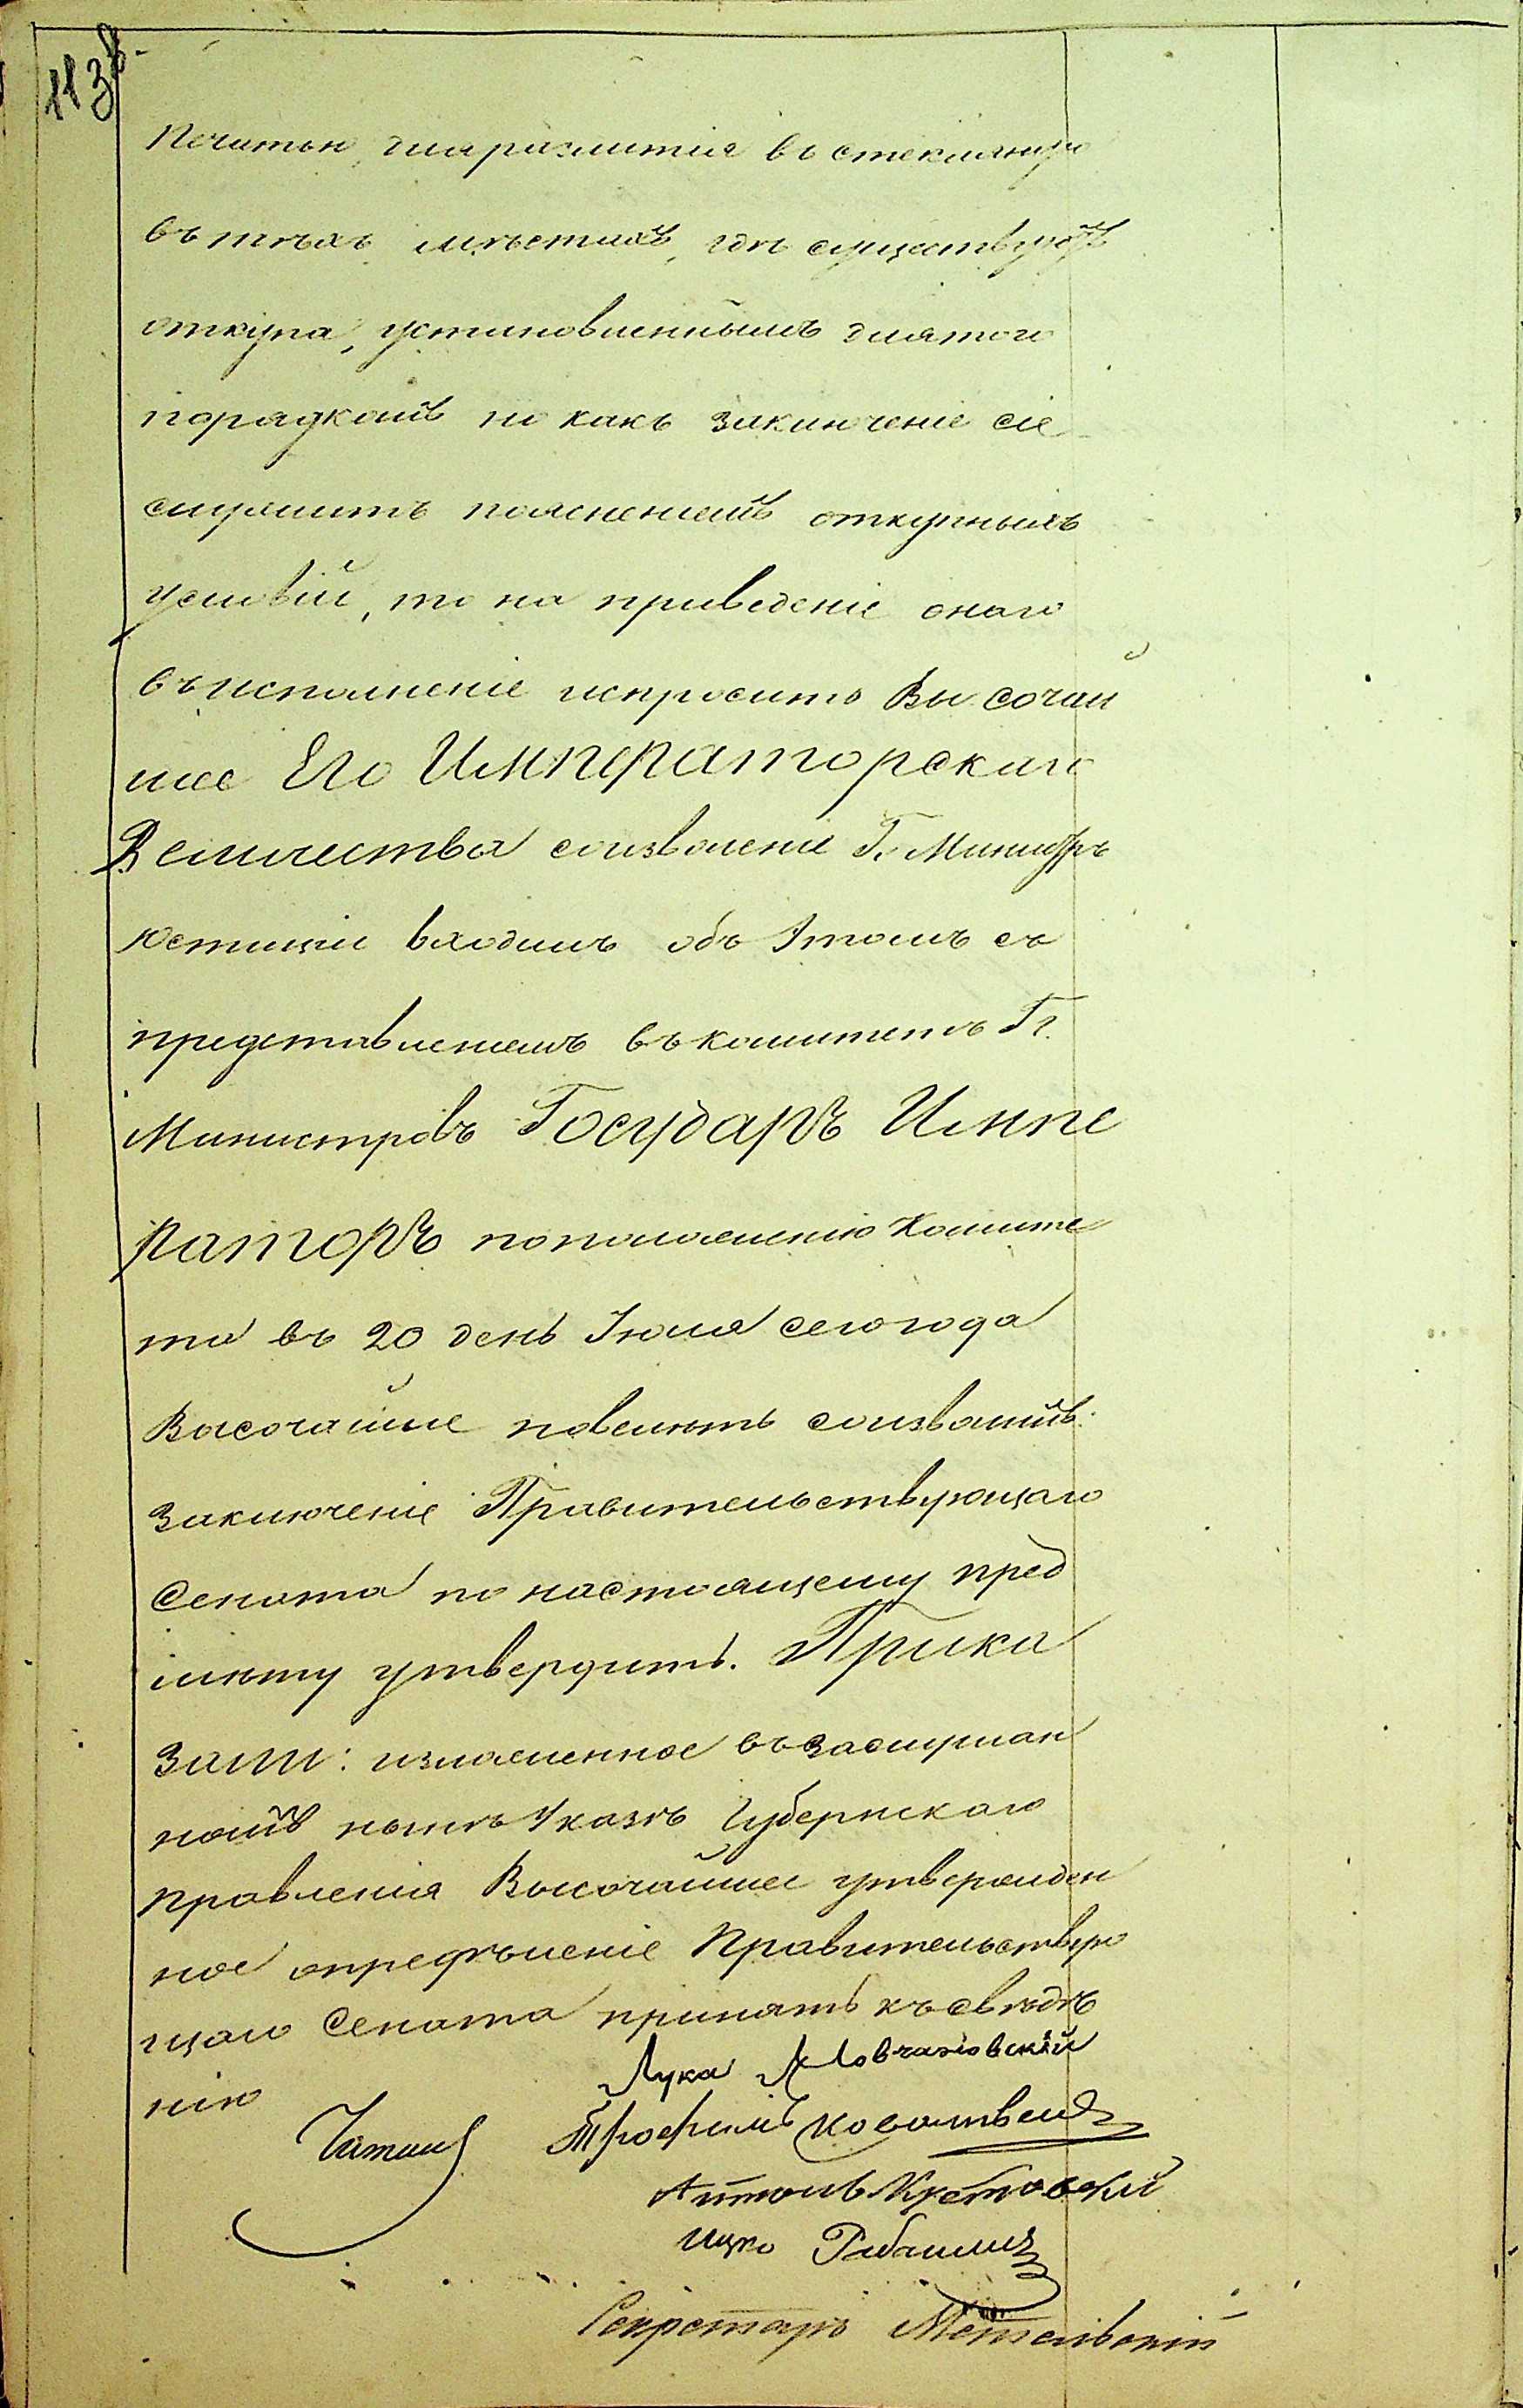 113 в.
Печатью, для разлитія въ стеклянную
въ тѣхъ мѣстахъ, гдѣ существуютъ
откупа, установленнымъ для того
порядкомъ но какъ заключеніе сіе
служитъ поясненіемъ откупныхъ
условій, то на приведеніе онаго
въ исполненіе испросить Высочай
шее Его Императорскаго
Величества соизволеніе Г. Министръ
Юстиціи входилъ объ этомъ съ
представленіемъ въ комитетъ Гг.
Министровъ Государь Импе
раторъ по положенію Комите
та въ 20 день Іюля сего года
Высочайше повелѣть соизволилъ:
Заключеніе Правительствующаго
Сената по настоящему пред
мѣту утвердить. Прика
зали: изложенное въ заслушан
номъ нынѣ Указѣ Губернскаго
Правленія Высочайшее утвержден
ное опредѣленіе Правительствую
щаго Сената принять къ свѣдѣ
нію
Лука
Трофимъ
Антонъ
Ицко
Секретарь